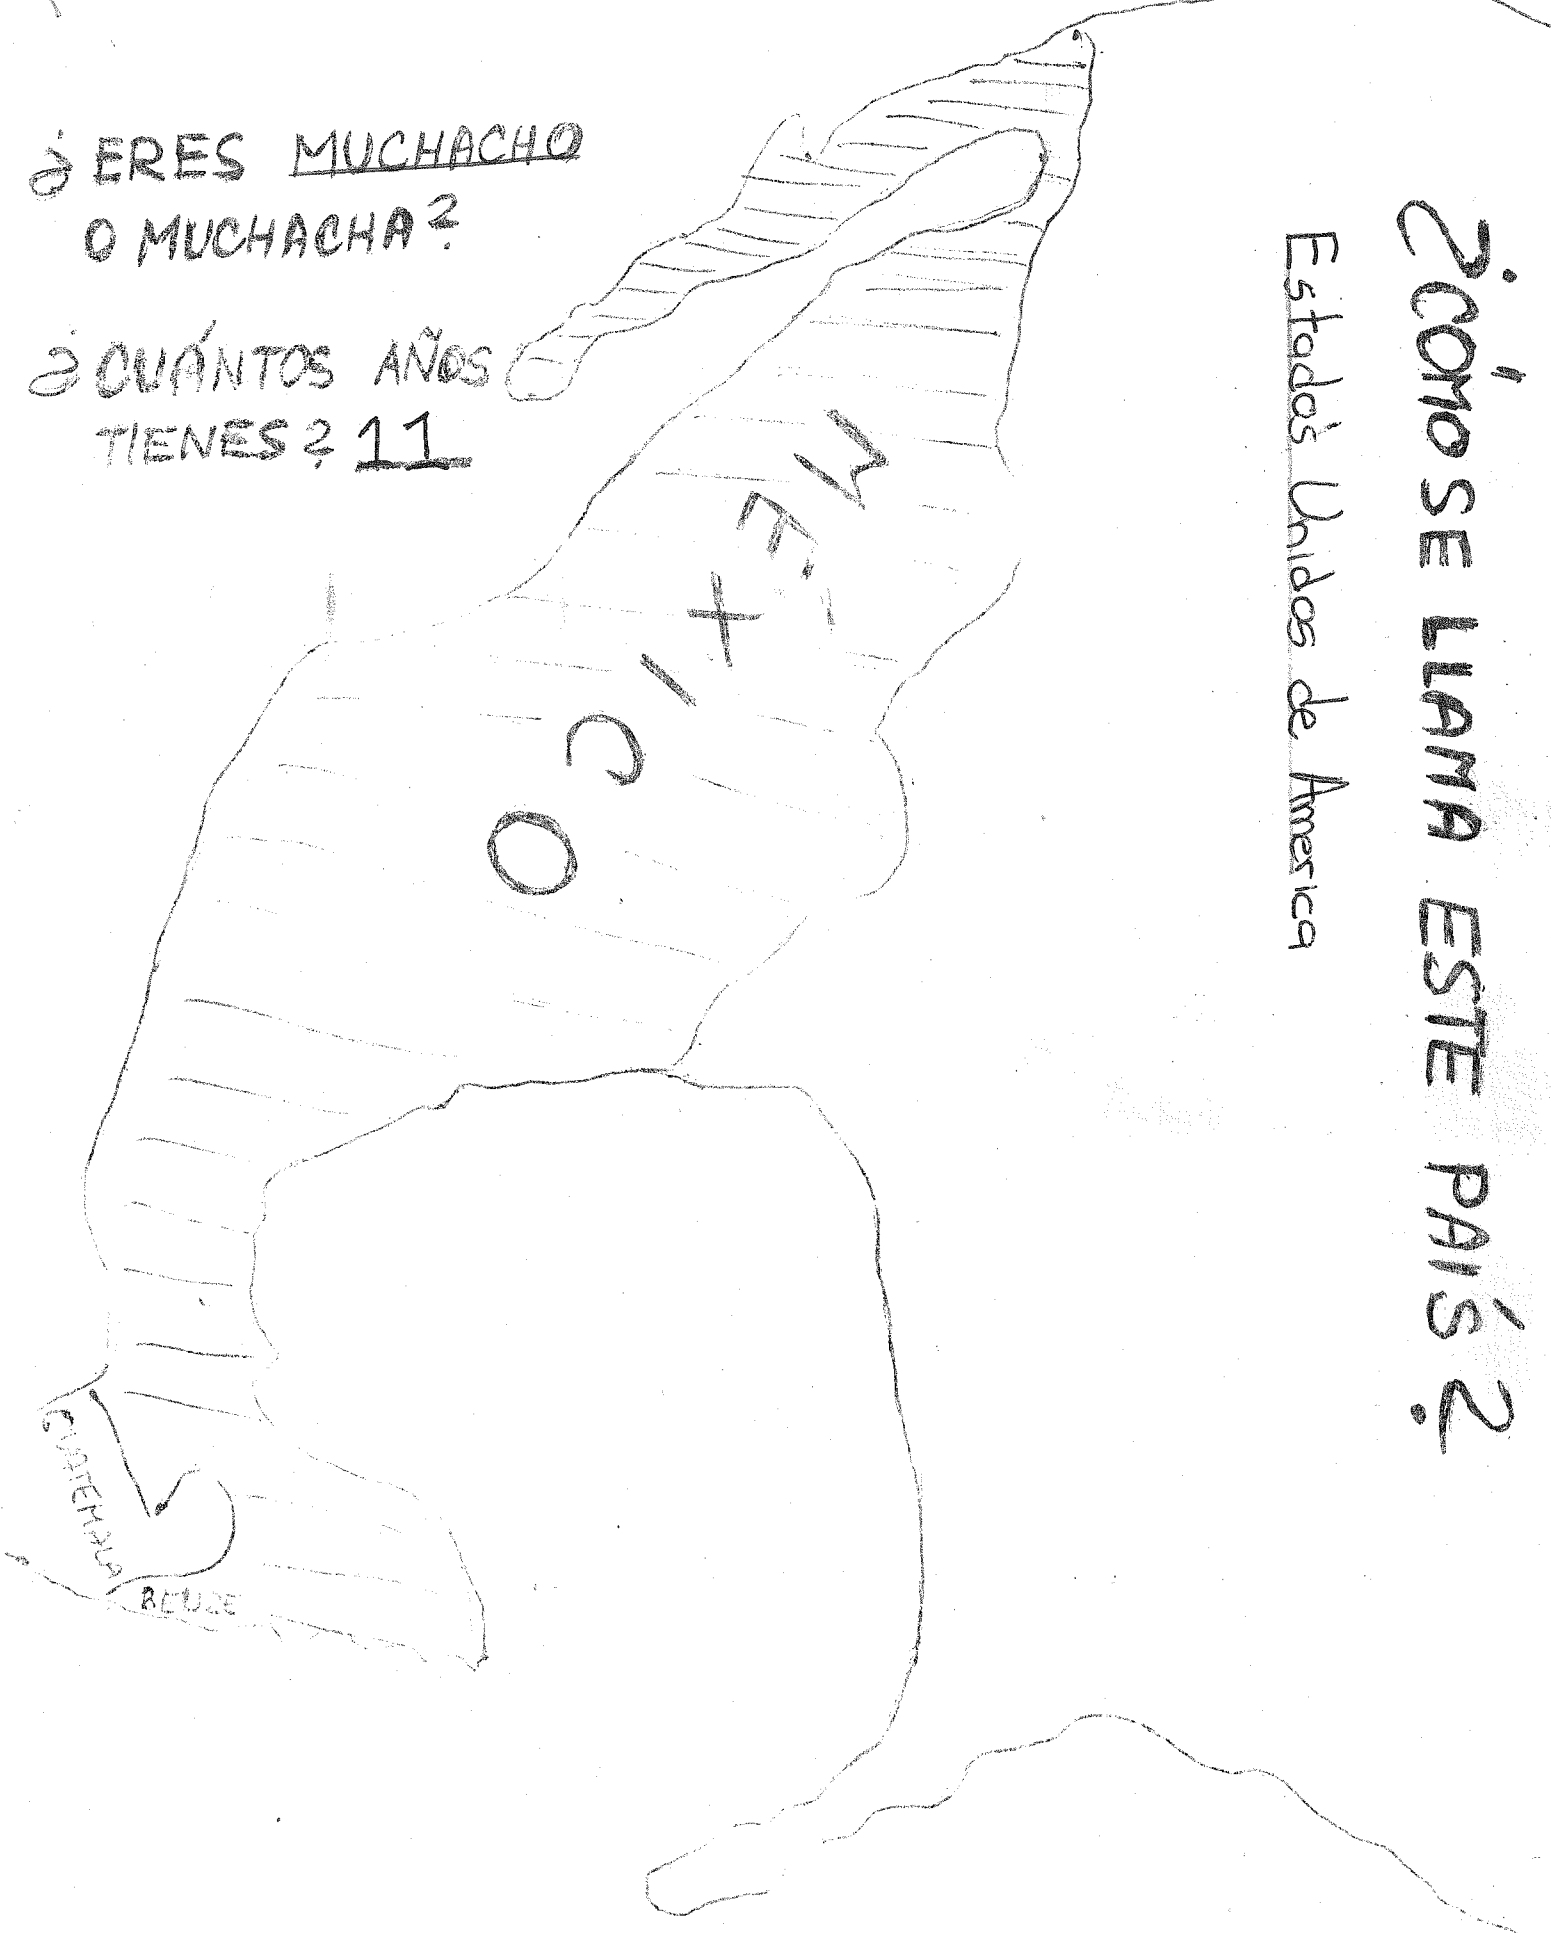 ¿CÓMO SE LLAMA ESTE PAÍS?
Estados Unidos de America
¿ERES MUCHACHO
O MUCHACHA?
¿CUÁNTOS AÑOS
TIENES? 11
MÉXICO
GUATEMALA
BELIZE